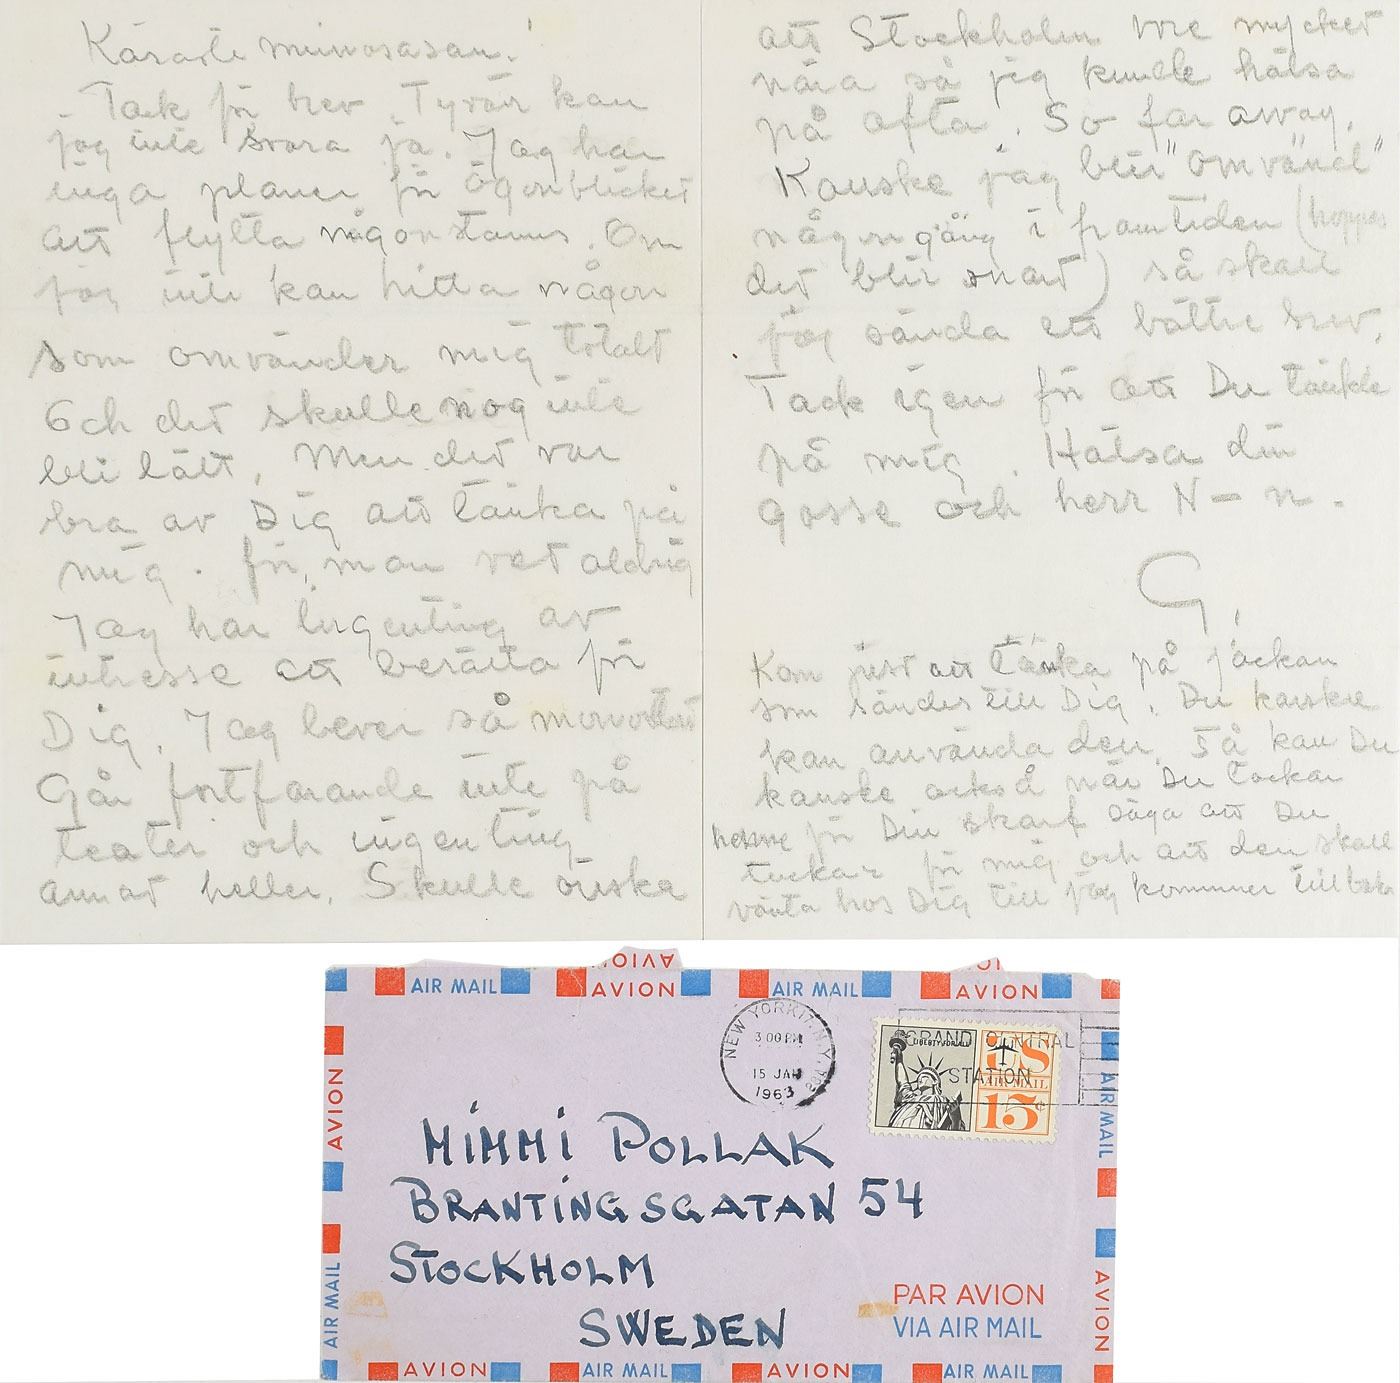 Käraste mimosasan!
Tack för brev. Tyvär kan
jag inte svara ja. Jag har
inga planer för ögonblicket
att flytta någonstans. Om
jag inte kan hitta någon
som omvänder mig totalt
Och det skulle nog inte
bli lätt. Men det var
bra av Dig att tänka på
mig. för, man vet aldrig
Jag har ingenting av
intresse att berätta för
Dig. Jag lever så
Går fortfarande inte på
teater och ingenting
annat heller. Skulle önska
att Stockholm vore mycket
nära så jag kunde hälsa
på ofta. So far away.
Kanske jag blir "omvänd"
någongång i framtiden (hoppas
det blir snart) så skall
jag sända ett bättre brev.
Tack igen för att Du tänkte
på mig. Hälsa din
gosse och herr N-n.
G.
Kom just att tänka på jackan
som sändes till Dig. Du kanske
kan använda den. Så kan Du
kanske också när Du tackar
henne för Din skarf säga att Du
tackar för mig och att den skall
vänta hos Dig till jag kommer tillbaka
AVION
AIR MAIL
AVION
AIR MAIL
AVION
NEW YORK 17, N.Y.
3 00 PM
15 JAN
1963
GRAND CENTRAL
STATION
LIBERTY FOR ALL
US
AIR MAIL
15¢
MIMMI POLLAK
BRANTINGSGATAN 54
STOCKHOLM
SWEDEN
PAR AVION
VIA AIR MAIL
AVION
AIR MAIL
AIR MAIL
AVION
AVION
AIR MAIL
AVION
AIR MAIL